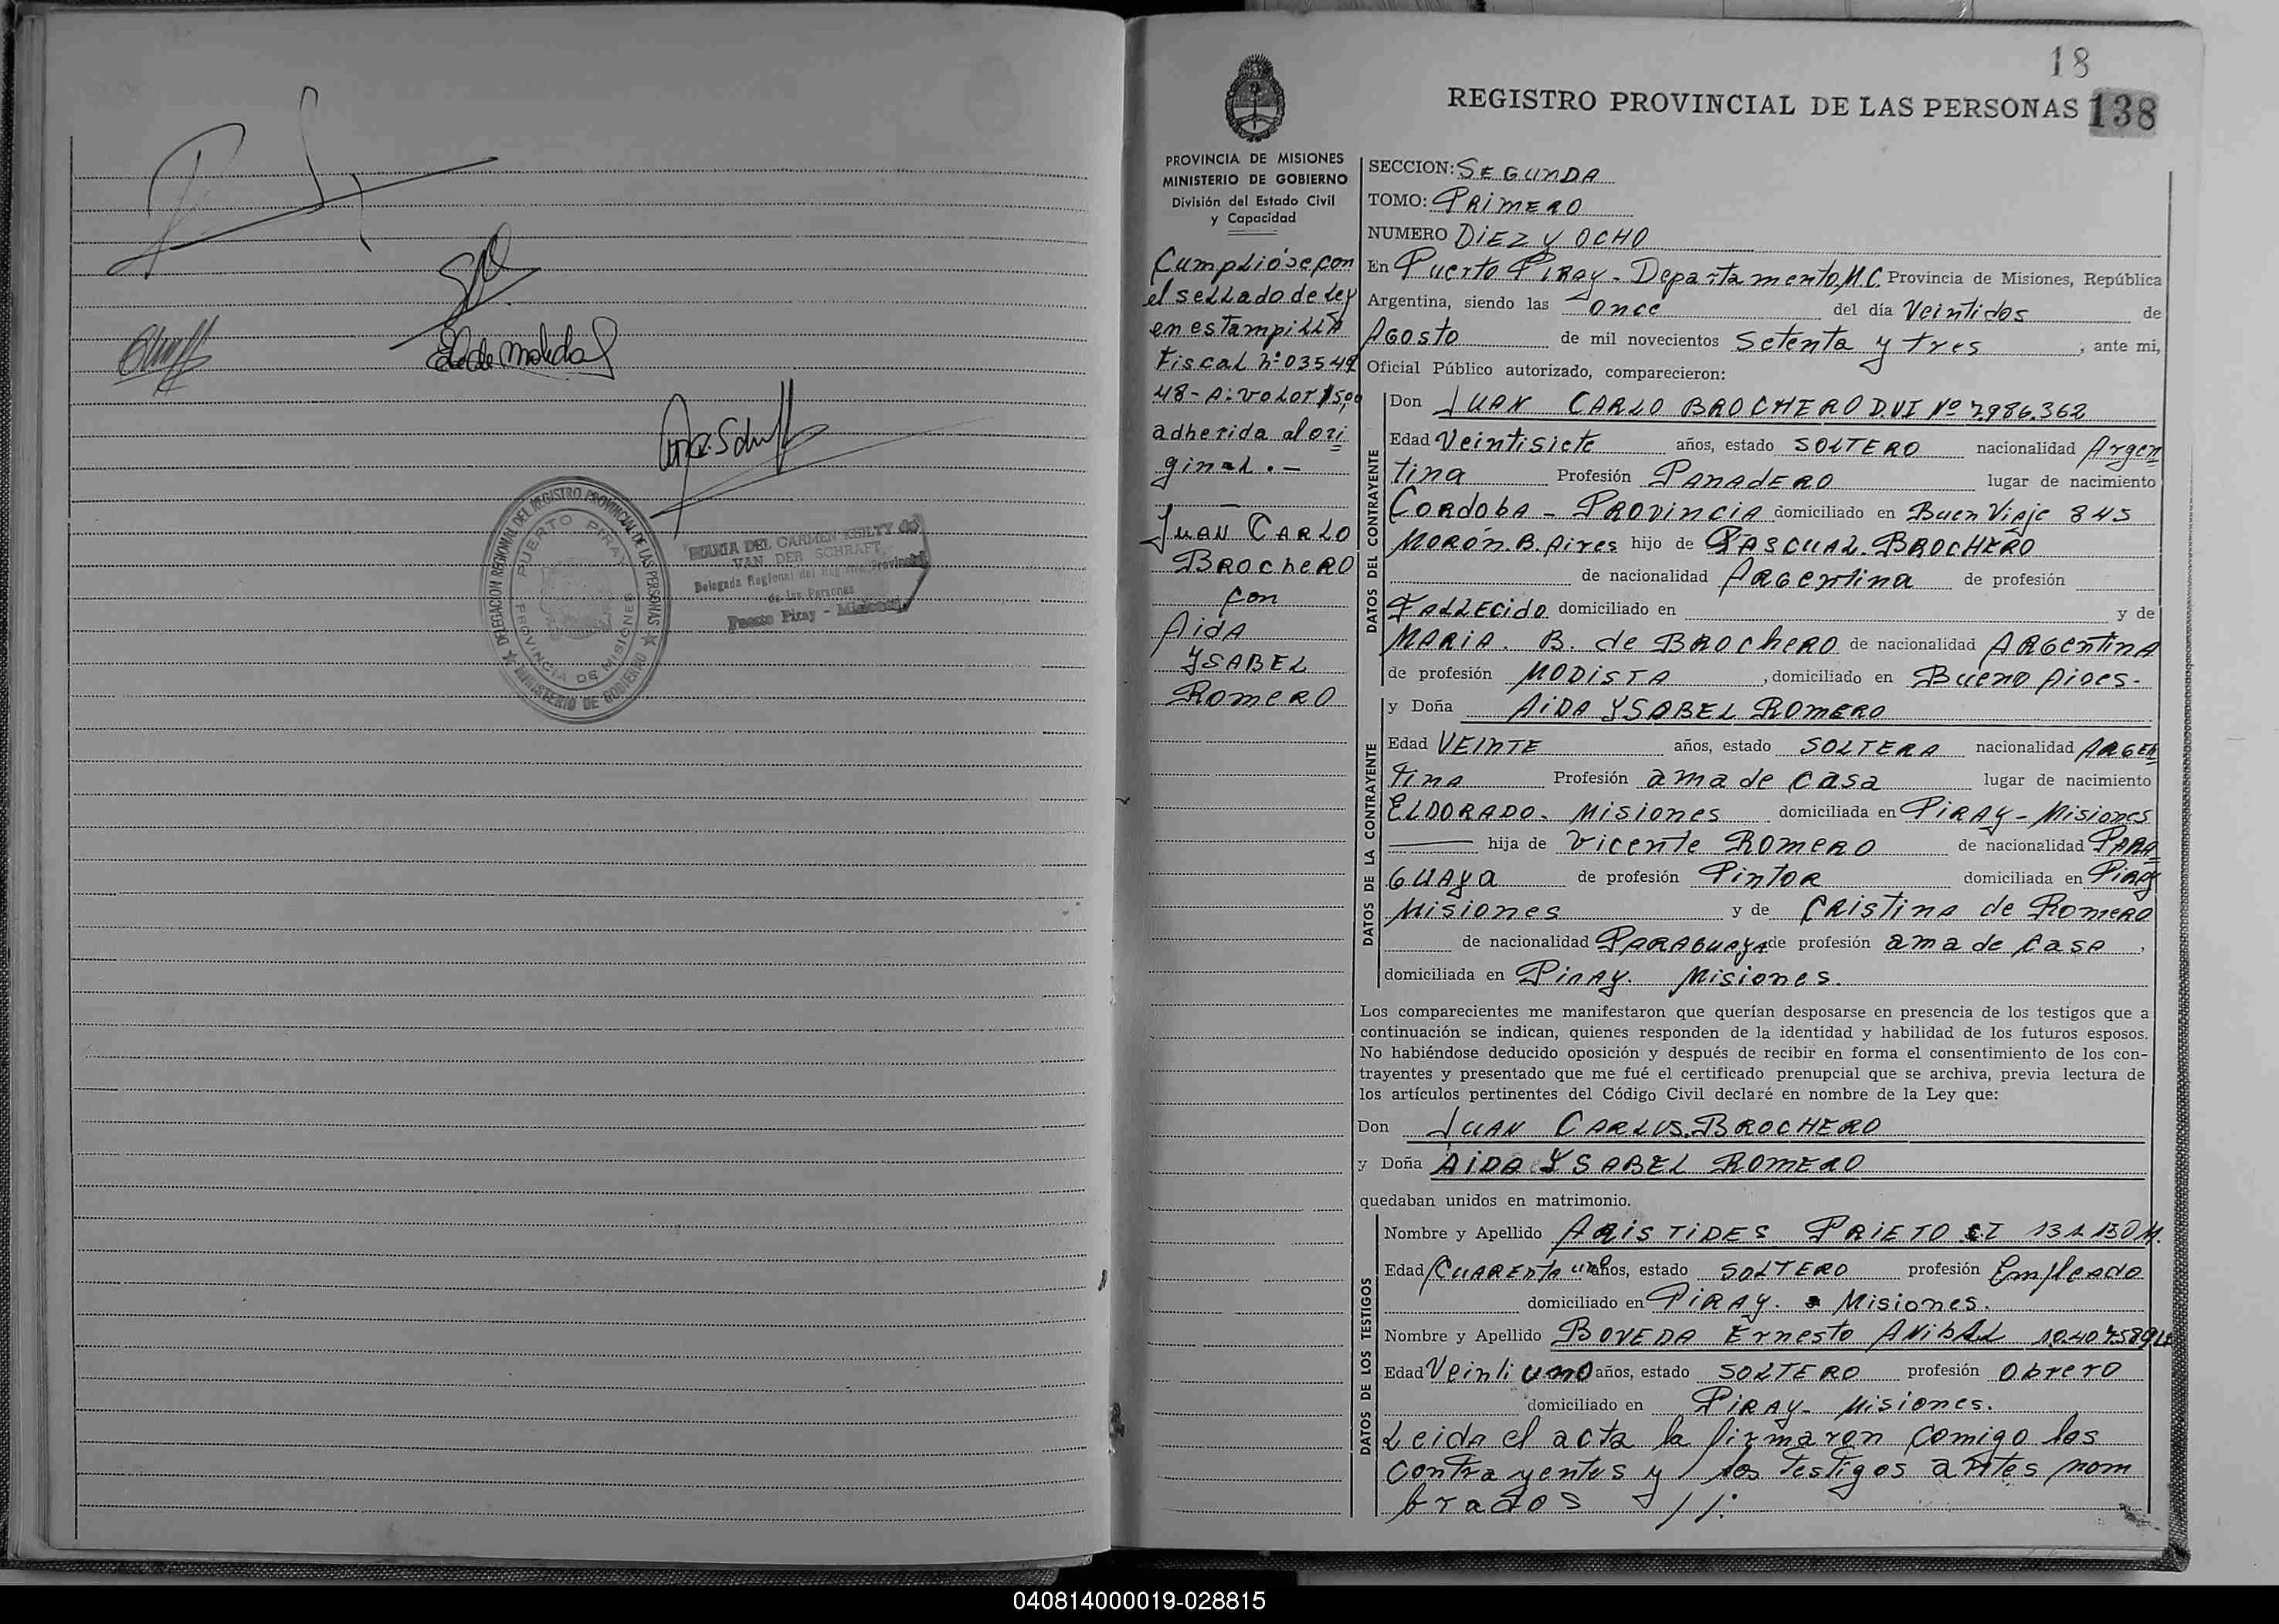 Elo de Maleda
DELEGACION REGIONAL DEL REGISTRO PROVINCIAL DE LAS PERSONAS
MINISTERIO DE GOBIERNO
PUERTO PIRAY
PROVINCIA DE MISIONES
MARIA DEL CARMEN KEILTY de
VAN DER SCHRAFT
Delegada Regional del Registro Provincial
de las Personas
Puerto Piray - Misiones
18
REGISTRO PROVINCIAL DE LAS PERSONAS 138
PROVINCIA DE MISIONES
MINISTERIO DE GOBIERNO
División del Estado Civil
y Capacidad
Cumplióse con
el sellado de ley
en estampilla
Fiscal nº 03549
48-A: valor $5,00
adherida al ori
ginal.-
JUAN CARLO
BROCHERO
con
AIDA
YSABEL
ROMERO
SECCION: SEGUNDA
TOMO: PRIMERO
NUMERO DIEZ Y OCHO
En Puerto PIRAY - Departamento M.C. Provincia de Misiones, República
Argentina, siendo las once del día Veintidos de
AGOSTO de mil novecientos Setenta y tres, ante mi,
Oficial Público autorizado, comparecieron:
DATOS DEL CONTRAYENTE
Don JUAN CARLO BROCHERO D.N.I Nº 7.986.362
Edad Veintisiete años, estado SOLTERO nacionalidad Argen
tina Profesión PANADERO lugar de nacimiento
CORDOBA - PROVINCIA domiciliado en Buen Viaje 845
MORÓN. B. Aires hijo de PASCUAL. BROCHERO
de nacionalidad ARGENTINA de profesión
FALLECIDO domiciliado en y de
MARIA. B. de BROCHERO de nacionalidad ARGENTINA
de profesión MODISTA, domiciliado en BUENO Aires-
DATOS DE LA CONTRAYENTE
y Doña AIDA YSABEL ROMERO
Edad VEINTE años, estado SOLTERA nacionalidad ARGEN
TINA Profesión ama de casa lugar de nacimiento
ELDORADO. Misiones domiciliada en PIRAY - Misiones
hija de Vicente ROMERO de nacionalidad PARA
GUAYA de profesión PINTOR domiciliada en Piray
Misiones y de CRISTINA de ROMERO
de nacionalidad PARAGUAYA de profesión ama de casa,
domiciliada en PIRAY. Misiones.
Los comparecientes me manifestaron que querían desposarse en presencia de los testigos que a
continuación se indican, quienes responden de la identidad y habilidad de los futuros esposos.
No habiéndose deducido oposición y después de recibir en forma el consentimiento de los con-
trayentes y presentado que me fué el certificado prenupcial que se archiva, previa lectura de
los artículos pertinentes del Código Civil declaré en nombre de la Ley que:
Don JUAN CARLOS. BROCHERO
y Doña AIDA YSABEL ROMERO
quedaban unidos en matrimonio.
DATOS DE LOS TESTIGOS
Nombre y Apellido ARISTIDES PRIETO C.I
Edad CUARENTA uno años, estado SOLTERO profesión Empleado
domiciliado en PIRAY. Misiones.
Nombre y Apellido BOVEDA Ernesto ANIBAL
Edad Veintiuno años, estado SOLTERO profesión obrero
domiciliado en PIRAY- Misiones.
Leida el acta la firmaron comigo los
contrayentes y los testigos antes nom
brados
040814000019-028815